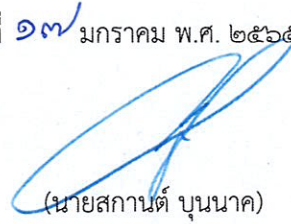 ที่ ๑๗ มกราคม พ.ศ. ๒๕๖๕
(นายสกานต์ บุนนาค)